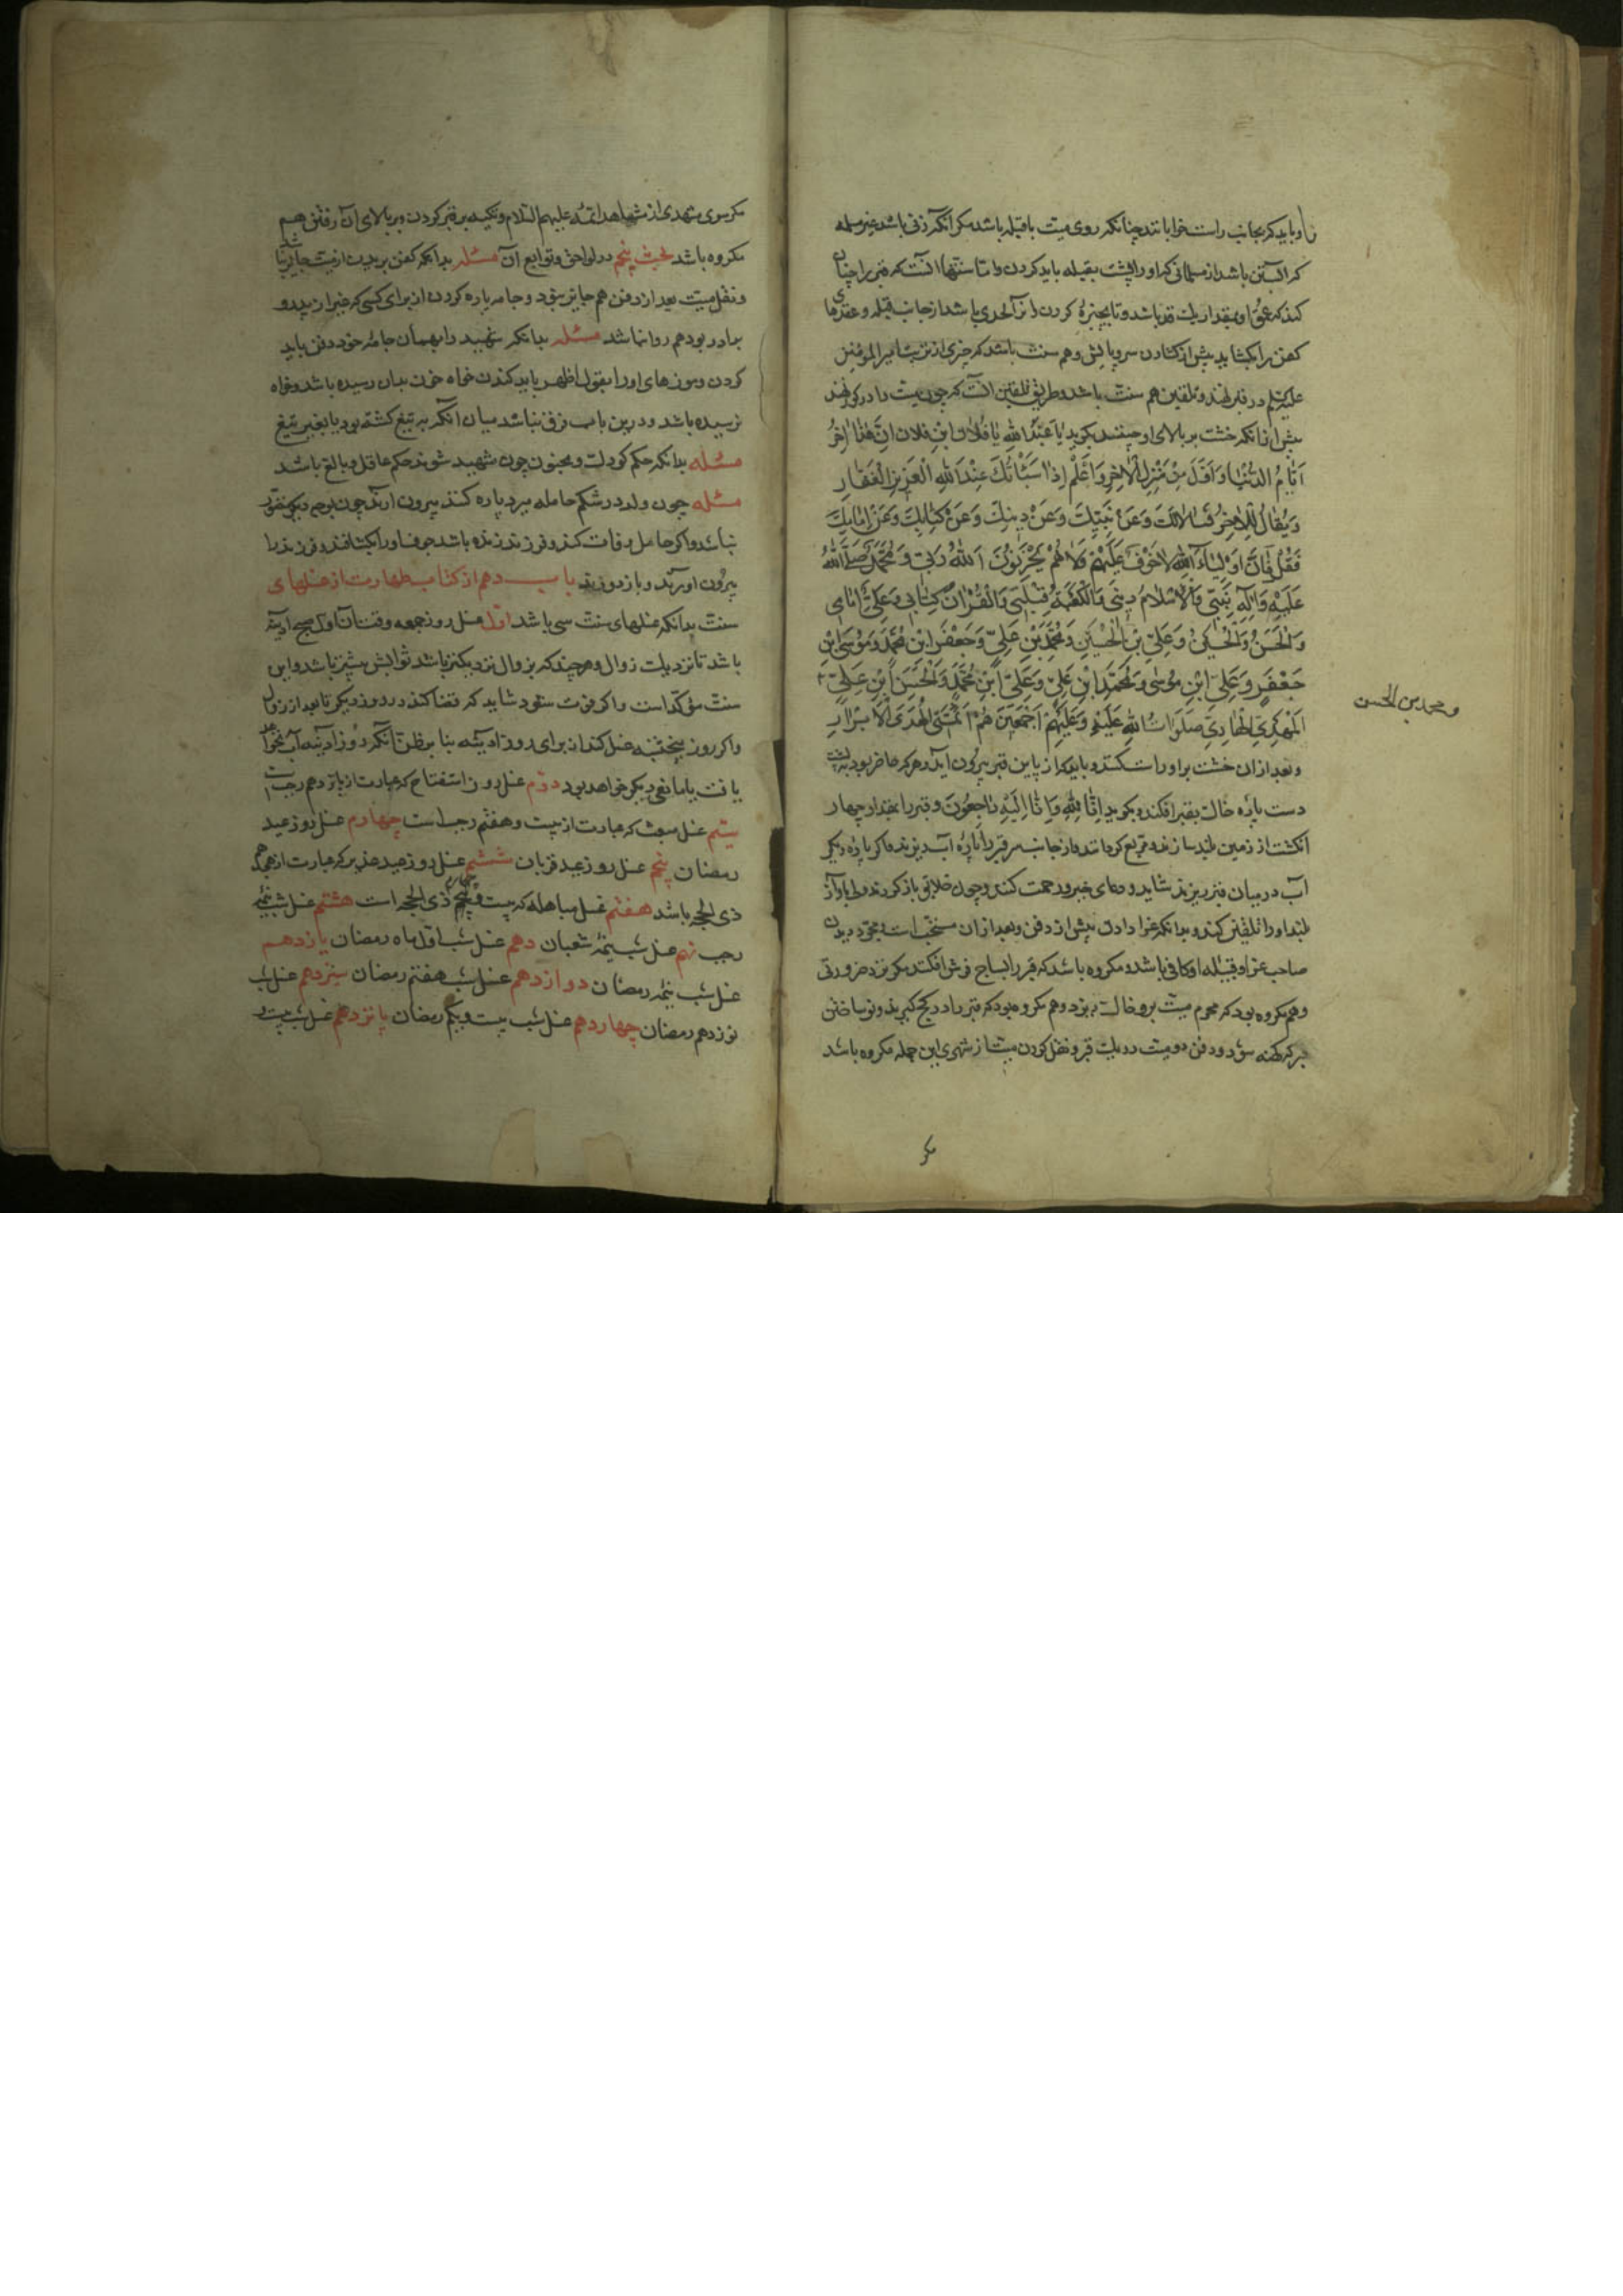 را و باید که بجانب راست خوابانند چنانکه روی میت با قبله باشد مکر انکه زنی باشد غیر مسلمه
که آبستن باشد از مسلمانی که او را پشت بقبله باید کردن و اما سنتها آنست که قبر را چنان
کنند که عمق او بمقدار یک قد باشد و تا بچنبره کردن و نیز آنکه لحدی باشد از جانب قبله و عقدهای
کفن را بکشاید پیش از کشادن سر و پایش و هم سنت باشد که چیزی از تربت امیر المؤمنین
علیه السلم در قبر نهند و تلقین هم سنت باشد و طریق تلقین آنست که چون میت را در کور نهند
پیش از انکه خشت بر بالای او چینند بکوید یا عبد الله یا فلان ابن فلان ان هذا آخر
ایام الدنیا و اول من منزل الاخر و اعلم اذا عند الله العزیز الغفار
و یقال للاخر فسالانک و عن نبیک و عن دینک و عن کتابک و عن امامک
فقل فان اولیاء الله لا خوف علیهم ولا هم یحزنون الله ربی و محمد صلی الله
علیه و اله نبیی و الاسلام دینی و الکعبة قبلتی و القران کتابی و علی امامی
و الحسن و الحسین و علی بن الحسین و محمد بن علی و جعفر ابن محمد و موسی ابن
جعفر و علی ابن موسی و محمد ابن علی و علی ابن محمد و الحسن ابن علی
المهدی الهادی صلوات الله علیه و علیهم اجمعین هم ائمتی الهدی الابرار
و بعد از ان خشت برو راست کنند و باید که از پایین قبر بیرون آید و هر که حاضر بود به پشت
دست پاره خاک بقبر افکند و بکوید انا لله و انا الیه راجعون و قبر را بمقدار چهار
انکشت از زمین بلند سازند و تربیع کردانند و از جانب سر قبر را پاره آب ریزند و اکر پاره دیکر
آب در میان قبر ریزند شاید و دعای خیر و رحمت کنند و چون خلایق باز کردند ولی باواز
بلند او را تلقین کند و بدانکه عزا دادن پیش از دفن و بعد از ان مستحب است و مجرد دیدن
صاحب عزا و قبیله او کافی باشد و مکروه باشد که قبر را بساج فرش افکنند مکر نزد ضرورتی
و هم مکروه بود که محرم میت برو خاک بریزد و هم مکروه بود که قبر را در کچ کیرند و نو ساختن
هر که کهنه شود و دفن دو میت در یک قبر و نقل کردن میت از شهری این جمله مکروه باشد
مکر
و محمد بن الحسن
مکر سوی مشهدی از مشاهد ائمه علیهم السلام و تکیه بر قبر کردن و بر بالای ان رفتن هم
مکروه باشد بحث پنجم در لواحق و توابع آن مسئله بدانکه کفن بریدن از میت جایز نباشد
و نقل میت بعد از دفن هم جایز نبود و جامه پاره کردن از برای کسی که غیر از پدر و
برادر بود هم روا نباشد مسئله بدانکه شهید را بهمان جامه خود دفن باید
کردن و موزهای او را بقول اظهر باید کندن خواه خون بدان رسیده باشد و خواه
نرسیده باشد و درین باب فرق نباشد میان انکه بتیغ کشته بود یا بغیر تیغ
مسئله بدانکه حکم کودک و مجنون چون شهید شوند حکم عاقل و بالغ باشد
مسئله چون ولد در شکم حامله میرد پاره کنند بیرون ارند چون بوجه دیکر مقدور
نباشد و اکر حامل وفات کند و فرزند زنده باشد جوف او را بشکافند و فرزند را
بیرون اورند و باز دوزند باب دهم از کتاب طهارت از غسلهای
سنت بدانکه غسلهای سنت سی باشد اول غسل روز جمعه و وقتش از اول صبح ادینه
باشد تا نزدیک زوال و هر چند که بزوال نزدیکتر باشد ثوابش بیشتر باشد و این
سنت مؤکد است و اکر فوت شود شاید که قضا کند در روز دیکر تا بعد از زوال
و اکر روز پنجشنبه غسل کند از برای روز ادینه بنا بر ظن انکه روز ادینه آب نخواهد
یافت یا مانعی دیکر خواهد بود دوم غسل روز استفتاح که عبارت از پانزدهم رجب است
سیم غسل مبعث که عبارت از بیست و هفتم رجب است چهارم غسل روز عید
رمضان پنجم غسل روز عید قربان ششم غسل روز عید غدیر که عبارت از هجدهم
ذی الحجه باشد هفتم غسل مباهله که بیست و پنجم چهارم ذی الحجه است هشتم غسل شب نیمه
رجب نهم غسل شب نیمه شعبان دهم غسل شب اول ماه رمضان یازدهم
غسل شب نیمه رمضان دوازدهم غسل شب هفتم رمضان سیزدهم غسل شب
نوزدهم رمضان چهاردهم غسل شب بیست و یکم رمضان پانزدهم غسل شب بیست و